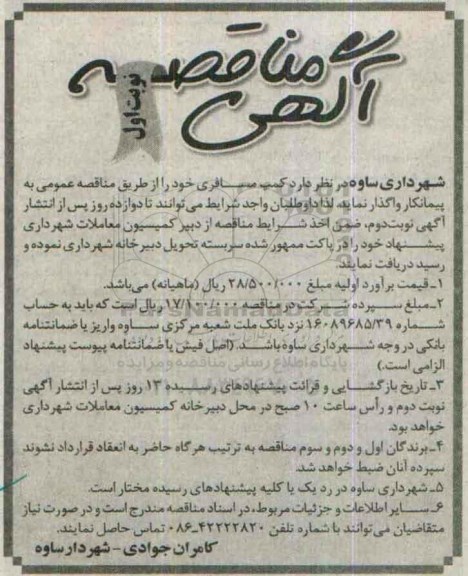 آگهی مناقصه
نوبت اول
شهرداری ساوه در نظر دارد کمپ مسافری خود را از طریق مناقصه عمومی به
پیمانکار واگذار نماید. لذا داوطلبان واجد شرایط می‌توانند تا دوازده روز پس از انتشار
آگهی نوبت دوم، ضمن اخذ شرایط مناقصه از دبیر کمیسیون معاملات شهرداری
پیشنهاد خود را در پاکت ممهور شده سربسته تحویل دبیرخانه شهرداری نموده و
رسید دریافت نمایند.
۱ـ قیمت برآورد اولیه مبلغ ۲۸/۵۰۰/۰۰۰ ریال (ماهیانه) می‌باشد.
۲ـ مبلغ سپرده شرکت در مناقصه ۱۷/۱۰۰/۰۰۰ ریال است که باید به حساب
شماره ۱۶۰۸۹۶۸۵/۳۹ نزد بانک ملت شعبه مرکزی ساوه واریز یا ضمانتنامه
بانکی در وجه شهرداری ساوه باشد. (اصل فیش یا ضمانتنامه پیوست پیشنهاد
الزامی است.)
۳ـ تاریخ بازگشایی و قرائت پیشنهادهای رسیده ۱۳ روز پس از انتشار آگهی
نوبت دوم و رأس ساعت ۱۰ صبح در محل دبیرخانه کمیسیون معاملات شهرداری
خواهد بود.
۴ـ برندگان اول و دوم و سوم مناقصه به ترتیب هرگاه حاضر به انعقاد قرارداد نشوند
سپرده آنان ضبط خواهد شد.
۵ـ شهرداری ساوه در رد یک یا کلیه پیشنهادهای رسیده مختار است.
۶ـ سایر اطلاعات و جزئیات مربوطه، در اسناد مناقصه مندرج است و در صورت نیاز
متقاضیان می‌توانند با شماره تلفن ۴۲۲۲۲۸۲۰-۰۸۶ تماس حاصل نمایند.
کامران جوادی - شهردار ساوه
ParsNamadData
پایگاه اطلاع رسانی مناقصه و مزایده